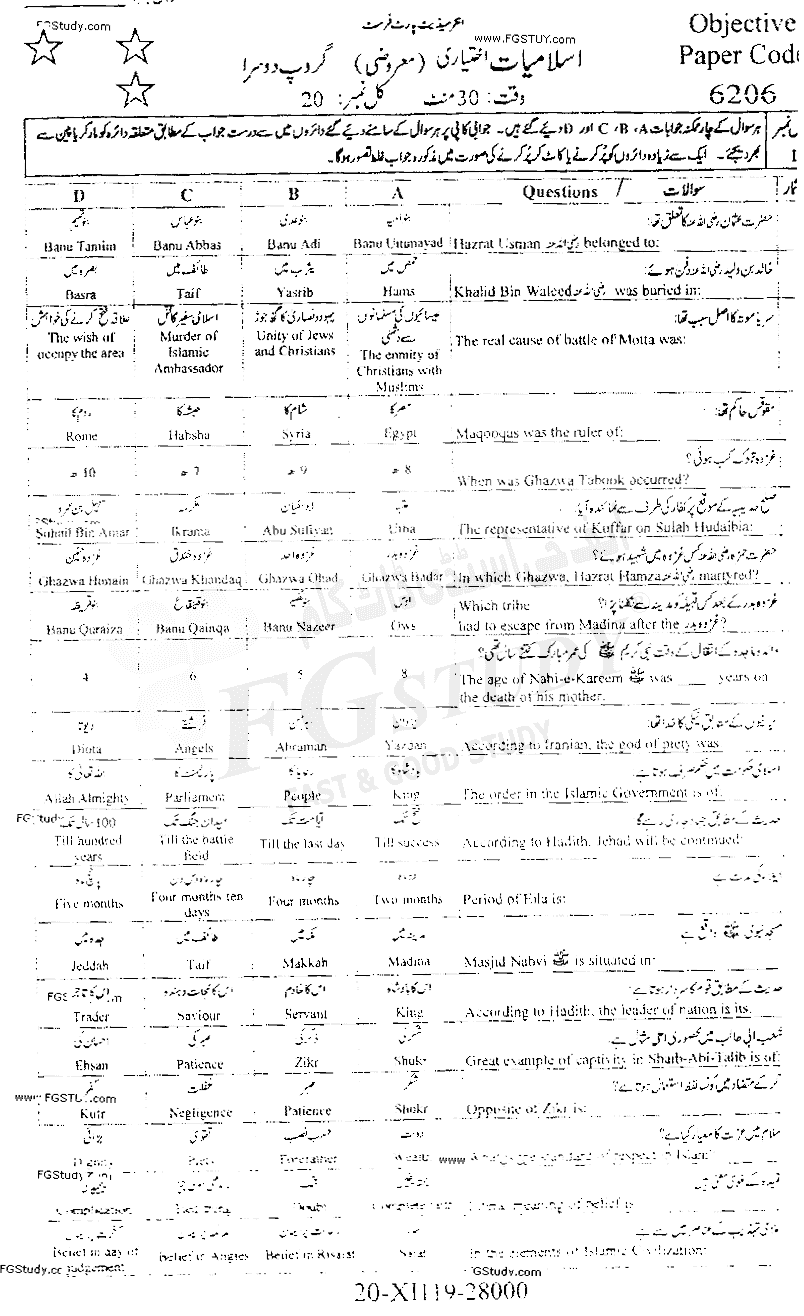 FGStudy.com
انٹرمیڈیٹ پارٹ فرسٹ
www.FGSTUY.com
Objective
Paper Code
6206
اسلامیات اختیاری (معروضی) گروپ دوسرا
وقت: 30 منٹ کل نمبر: 20
ہر سوال کے چار ممکنہ جوابات A، B، C اور D دیئے گئے ہیں۔ جوابی کاپی پر ہر سوال کے سامنے دیئے گئے دائروں میں سے درست جواب کے مطابق متعلقہ دائرہ کو مارکر یا پین سے
بھر دیجئے۔ ایک سے زیادہ دائروں کو پُر کرنے یا کاٹ کر پُر کرنے کی صورت میں مذکورہ جواب غلط تصور ہوگا۔
D C B A Questions / سوالات
بنو تمیم بنو عباس بنو عدی بنو امیہ حضرت عثمان رضی اللہ عنہ کا تعلق تھا:
Banu Tamim Banu Abbas Banu Adi Banu Ummayad Hazrat Usman belonged to:
بصرہ میں طائف میں یثرب میں حمص میں خالد بن ولید رضی اللہ عنہ دفن ہوئے:
Basra Taif Yasrib Hams Khalid Bin Waleed was buried in:
علاقہ فتح کرنے کی خواہش اسلامی سفیر کا قتل یہود و نصاریٰ کا گٹھ جوڑ عیسائیوں کی مسلمانوں سے دشمنی سریہ موتہ کا اصل سبب تھا:
The wish of occupy the area Murder of Islamic Ambassador Unity of Jews and Christians The enmity of Christians with Muslims The real cause of battle of Motta was:
روم کا حبشہ کا شام کا مصر کا مقوقس حاکم تھا:
Rome Habsha Syria Egypt Maqooqas was the ruler of:
غزوہ تبوک کب ہوئی؟
10 ھ 7 ھ 9 ھ 8 ھ When was Ghazwa Tabook occurred?
سہیل بن عمرو عکرمہ ابوسفیان عتبہ صلح حدیبیہ کے موقع پر کفار کی طرف سے نمائندہ آیا:
Suhail Bin Amar Ikrama Abu Sufiyan Utba The representative of Kuffar on Sulah Hudaibia:
غزوہ حنین غزوہ خندق غزوہ احد غزوہ بدر حضرت حمزہ رضی اللہ عنہ کس غزوہ میں شہید ہوئے؟
Ghazwa Hunain Ghazwa Khandaq Ghazwa Ohad Ghazwa Badar In which Ghazwa, Hazrat Hamza martyred?
بنو قریظہ بنو قینقاع بنو نضیر اوس Which tribe غزوہ بدر کے بعد کس قبیلہ کو مدینہ سے نکلنا پڑا؟
Banu Quraiza Banu Qainqa Banu Nazeer Ows had to escape from Madina after the غزوہ بدر?
والدہ ماجدہ کے انتقال کے وقت نبی کریم ﷺ کی عمر مبارک کتنے سال تھی؟
4 6 5 8 The age of Nabi-e-Kareem ﷺ was ___ years on
the death of his mother.
دیوتا فرشتے یزدان
Diota Angels Ahraman Yazdan According to Iranian, the god of piety was
اللہ تعالیٰ کا پارلیمنٹ کا رعایا کا بادشاہ کا اسلامی حکومت میں حکم صرف ہوتا ہے:
Allah Almighty Parliament People King The order in the Islamic Government is of:
100 سال تک میدان جنگ تک قیامت تک فتح تک حدیث کے مطابق جہاد جاری رہے گا
Till hundred years Till the battle field Till the last day Till success According to Hadith, Jehad will be continued:
Five months Four months ten days Four months Two months Period of Eila is:
جدہ میں طائف میں مکہ میں مدینہ میں مسجد نبوی ﷺ واقع ہے
Jeddah Taif Makkah Madina Masjid Nabvi ﷺ is situated in:
اس کا تاجر اس کا نجات دہندہ اس کا خادم اس کا بادشاہ حدیث کے مطابق قوم کا سردار ہوتا ہے:
Trader Saviour Servant King According to Hadith, the leader of nation is its.
احسان کی صبر کی ذکر کی شکر کی شعب ابی طالب میں محصوری اعلیٰ مثال ہے
Ehsan Patience Zikr Shukr Great example of captivity in Shaib-Abi-Talib is of:
کفر غفلت صبر شکر ذکر کے متضاد میں کونسا لفظ استعمال ہوتا ہے؟
www.FGSTUY.com
Kufr Negligence Patience Shukr Opposite of Zikr is:
تقویٰ حسب نسب دولت اسلام میں عزت کا معیار کیا ہے؟
Forefather Wealth standard of respect in Islam?
FGStudy.com
عقیدہ کے لغوی معنی ہیں
Doubt meaning of belief is
Belief in day of judgement Belief in Angles Belief in Risalat Salat In the elements of Islamic Civilization:
FGStudy.com
FGSTUDY
FAST & GOOD STUDY
20-XI119-28000